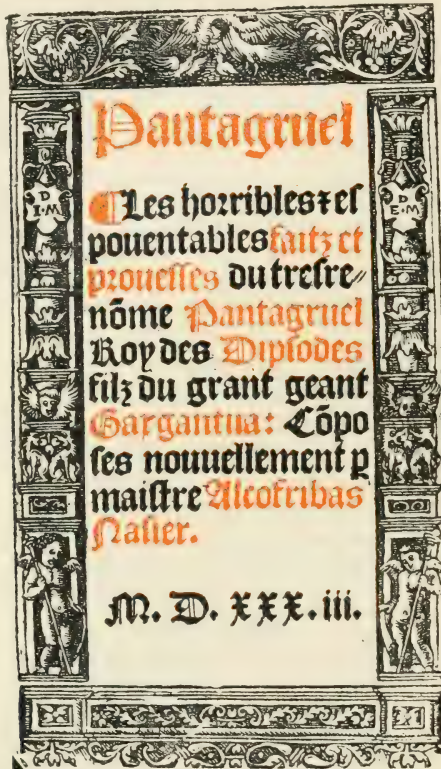 Pantagruel
¶Les horribles ⁊ eſ
pouentables faitz et
proueſſes du treſre⸗
nõme Pantagruel
Roy des Dipſodes
filz du grant geant
Gargantua: Cõpo
ſes nouuellement p
maiſtre Alcofribas
Naſier.
M. D. xxx. iii.
D
I·M
D
E·M